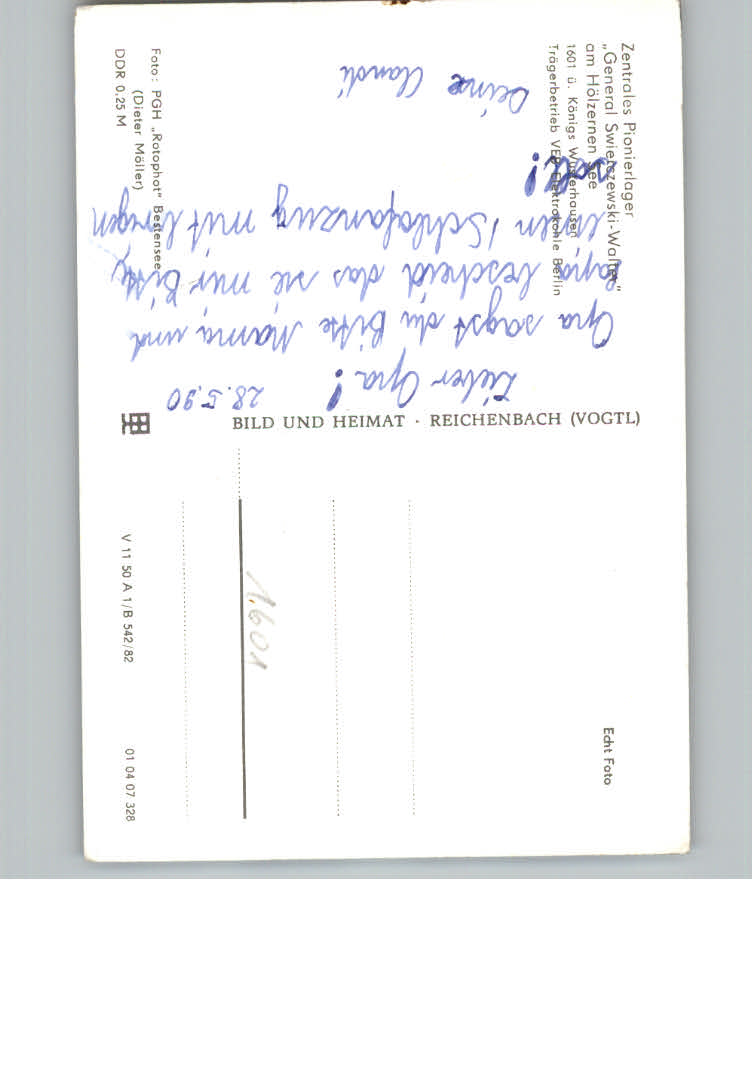 Zentrales Pionierlager
„General Swierczewski-Walter"
am Hölzernen See
1601 ü. Königs Wusterhausen
Trägerbetrieb VEB Elektrokohle Berlin
28.5.90
Lieber Opa!
Opa sagst du Bitte Mama und
Papa bescheid das sie mir Bitte,
einen Schlafanzug mit bringen
soll!
Deine Claudi
Foto: PGH „Rotophot" Bestensee
(Dieter Möller)
DDR 0,25 M
BILD UND HEIMAT · REICHENBACH (VOGTL)
V 11 50 A 1/B 542/82
01 04 07 328
1601
Echt Foto